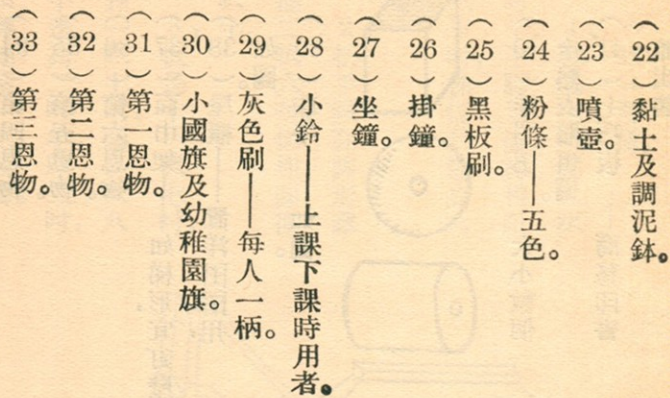 (22)黏土及調泥鉢。
(23)噴壺。
(24)粉條——五色。
(25)黑板刷。
(26)掛鐘。
(27)坐鐘。
(28)小鈴——上課下課時用者。
(29)灰色刷——每人一柄。
(30)小國旗及幼稚園旗。
(31)第一恩物。
(32)第二恩物。
(33)第三恩物。